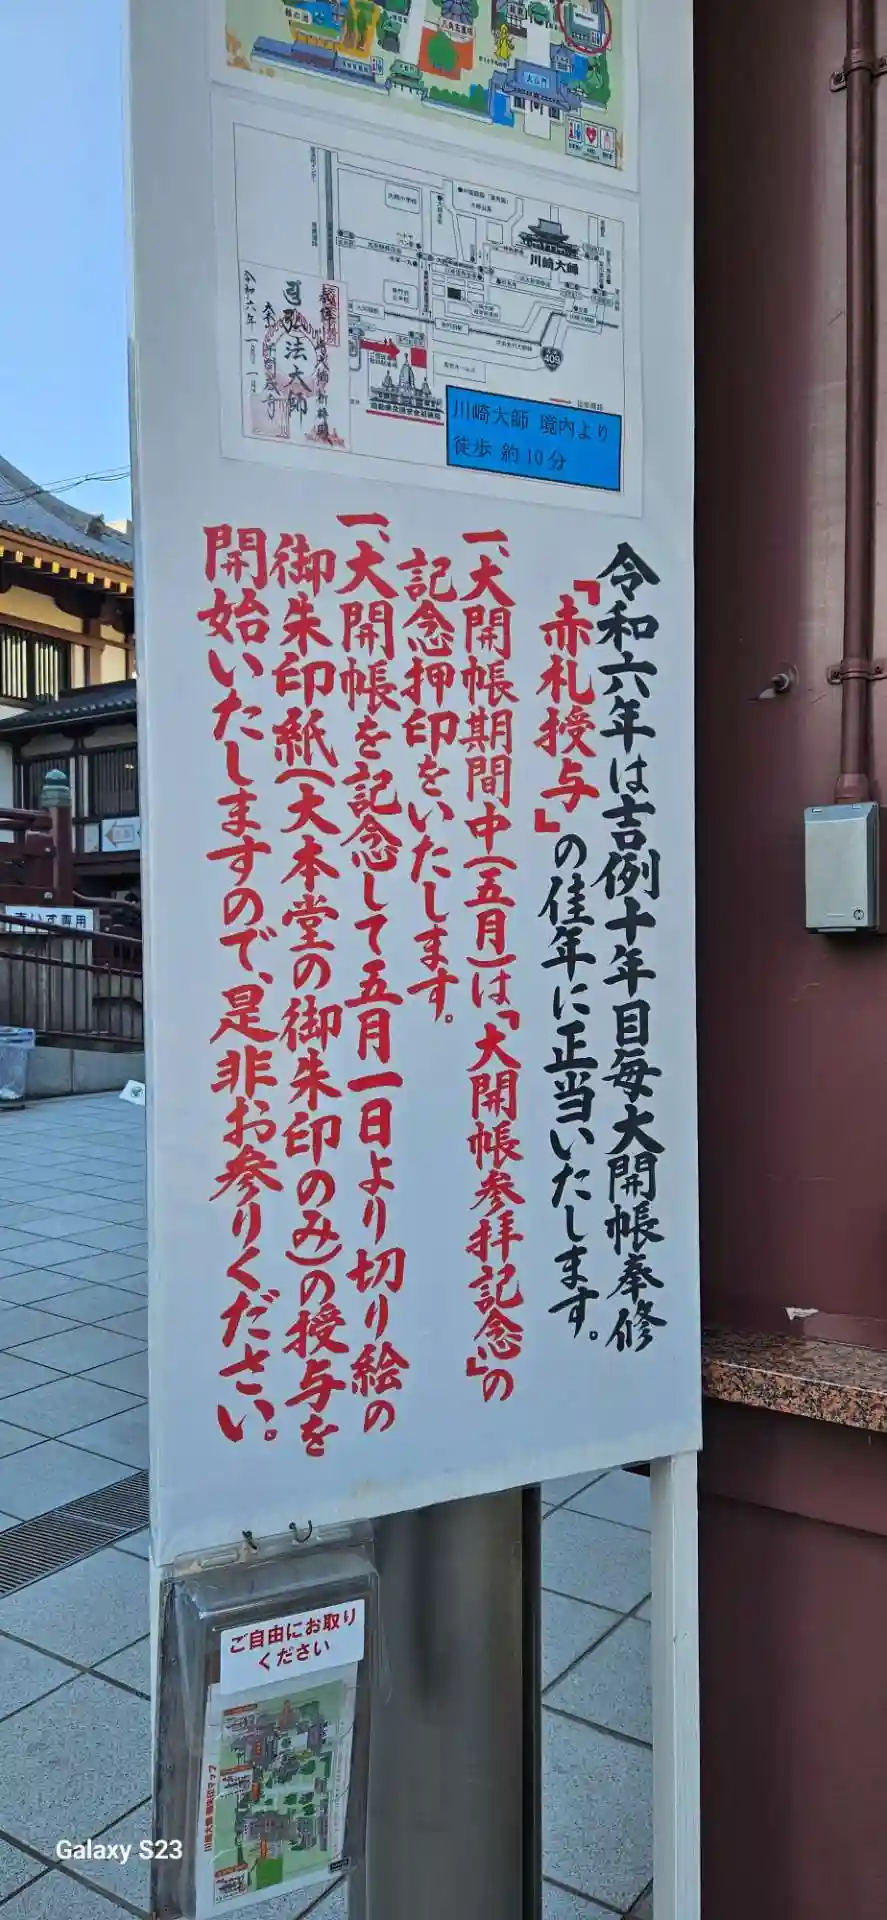 大山門
川崎大師
409
奉拝
弘法大師
令和六年一月一日
川崎大師 境内より
徒歩 約10分
令和六年は吉例十年目毎大開帳奉修
「赤札授与」の佳年に正当いたします。
一、大開帳期間中(五月)は「大開帳参拝記念」の
記念押印をいたします。
一、大開帳を記念して五月一日より切り絵の
御朱印紙(大本堂の御朱印のみ)の授与を
開始いたしますので、是非お参りください。
車いす専用
ご自由にお取り
ください
Galaxy S23